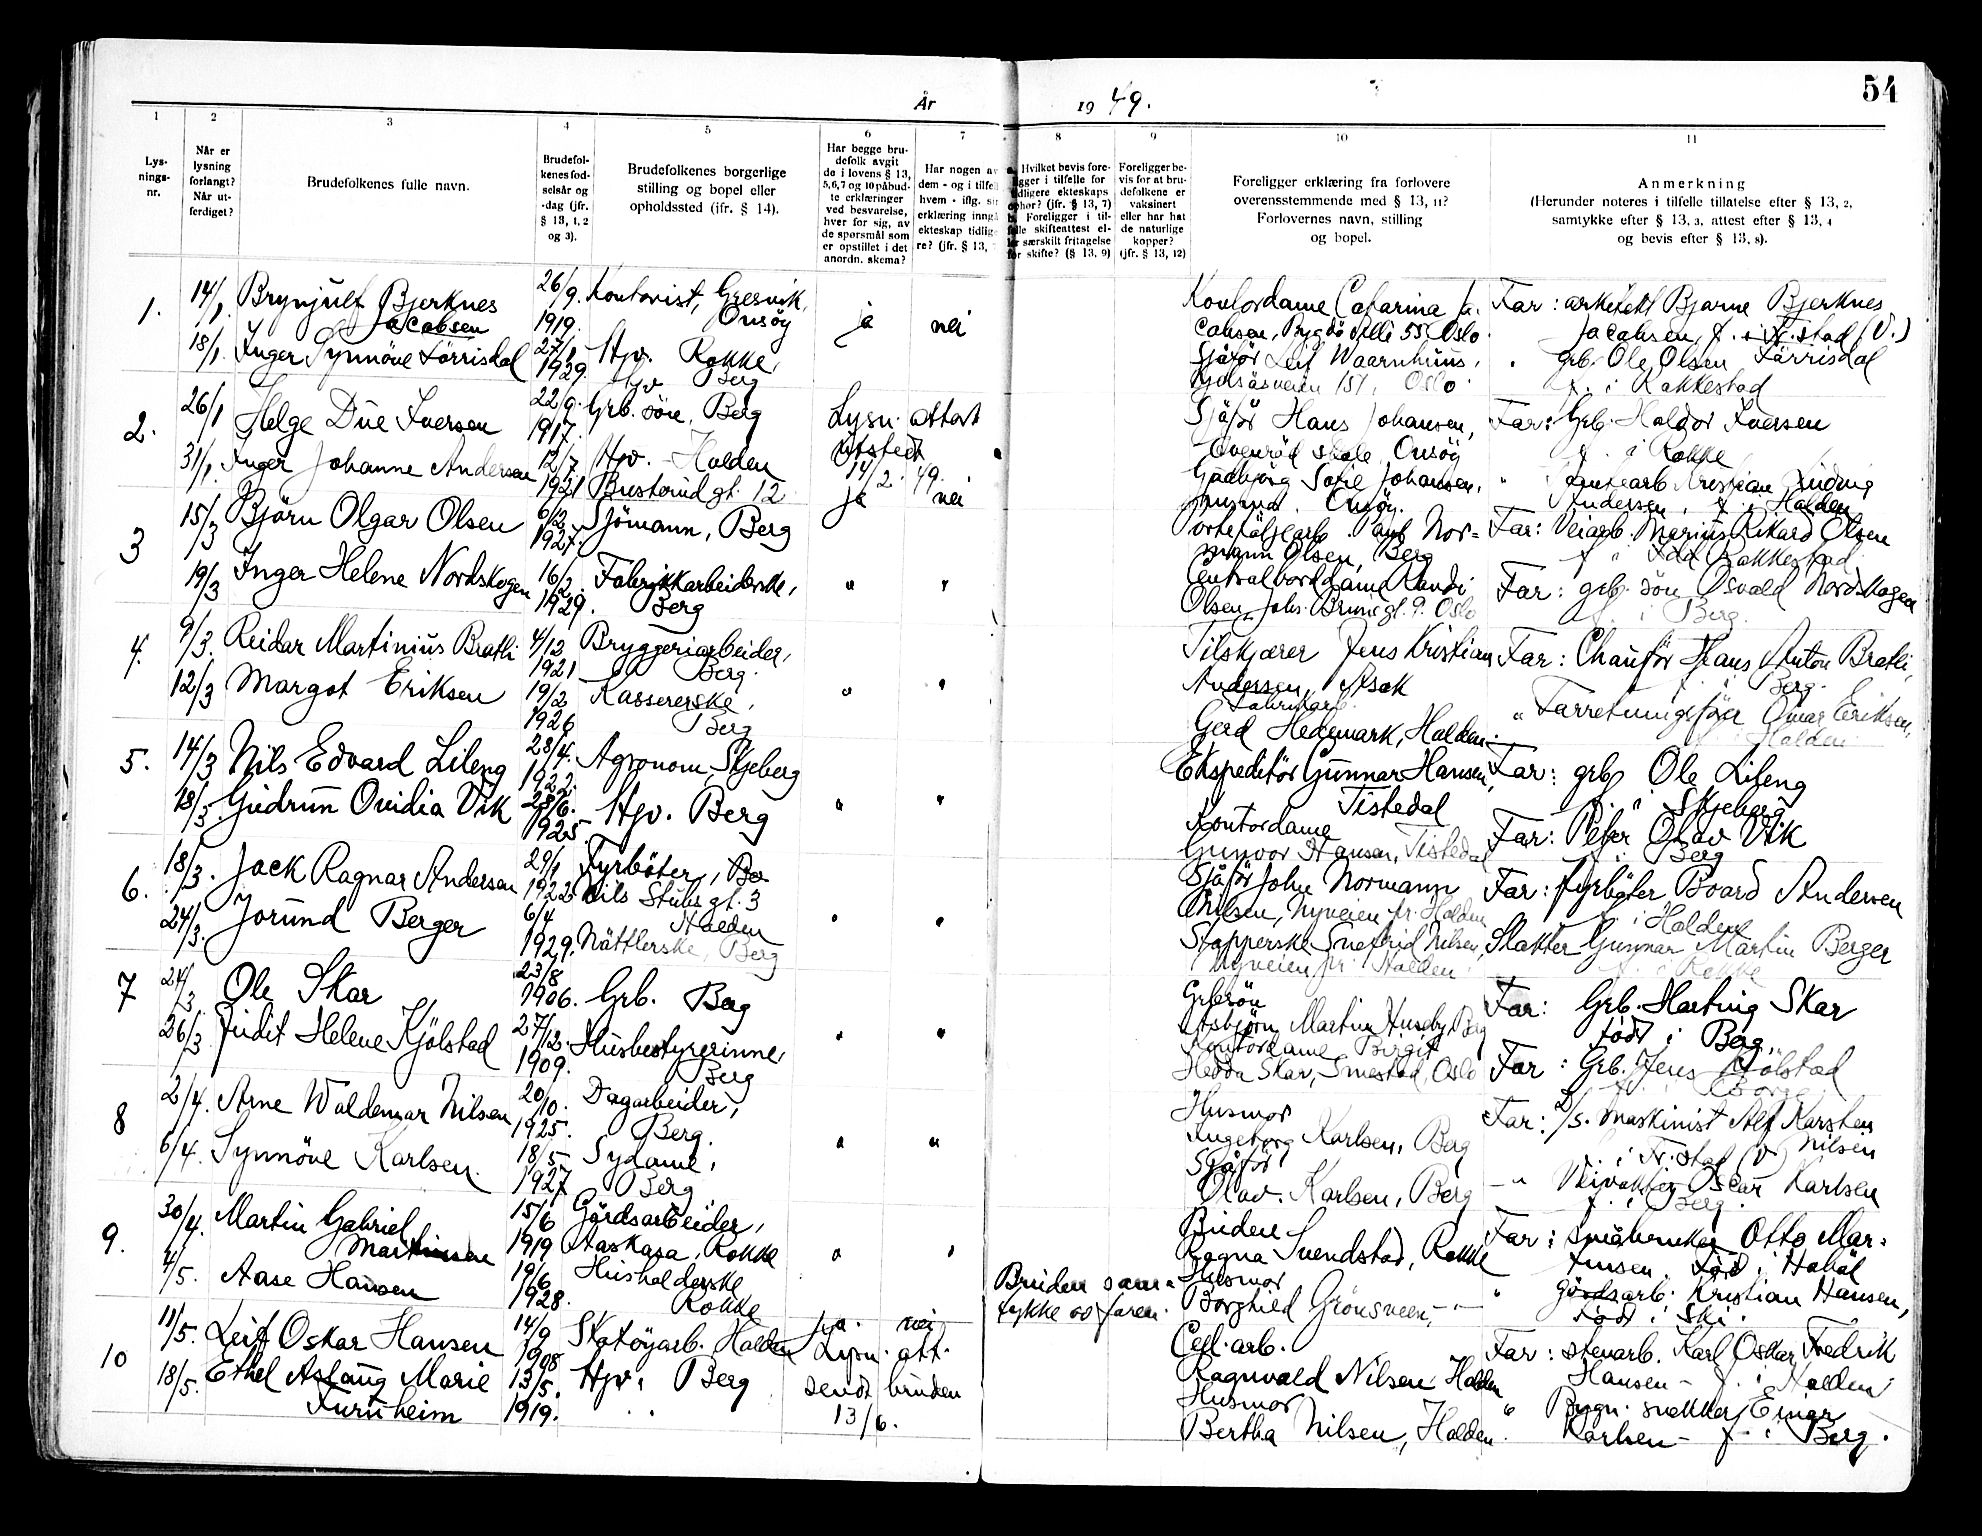 54
År 1949.
1 2 3 4 5 6 7 8 9 10 11
Lys-
nings-
nr.
Når er
lysning
forlangt?
Når ut-
ferdiget?
Brudefolkenes fulle navn.
Brudefol-
kenes fød-
selsår og
-dag (jfr.
§ 13, 1, 2
og 3).
Brudefolkenes borgerlige
stilling og bopel eller
opholdssted (ifr. § 14).
Har begge bru-
defolk avgit
de i lovens § 13,
5,6,7 og 10 påbud-
te erklæringer
ved besvarelse,
hver for sig, av
de spørsmål som
er opstillet i det
anordn. skema?
Har nogen av
dem - og i tilfell
hvem - iflg. sin
erklæring inngå
ekteskap tidlige
re? (jfr. § 13,
Hvilket bevis fore-
ligger i tilfelle for
tidligere ekteskaps
ophør? (jfr. § 13, 7)
Foreligger i til-
felle skifteattest el-
ler særskilt fritagelse
for skifte? (§ 13, 9)
Foreligger be-
vis for at bru-
defolkene er
vaksinert
eller har hat
de naturlige
kopper?
(jfr. § 13, 12)
Foreligger erklæring fra forlovere
overensstemmende med § 13, 11?
Forlovernes navn, stilling
og bopel.
Anmerkning
(Herunder noteres i tilfelle tillatelse efter § 13, 2,
samtykke efter § 13, 3, attest efter § 13, 4
og bevis efter § 13, 8).
1. 14/1 Brynjulf Bjerknes
Jacobsen
26/9. 1919. Kontorist, Gresvik,
Onsöy
ja nei
Kontordame Catarina Ja-
cobsen, Bygdö Alle 55 Oslo.
Far: arkitekt Bjarne Bjerknes
Jacobsen, f. i Fr.stad (V.)
18/1. Inger Synnöve Törrisdal
27/1 1929. Hjv. Rokke,
Berg
Sjåför Leif
151, Oslo.
" grb. Ole Olsen Törrisdal
f. i Rakkestad
2. 26/1 Helge Due Iversen
22/9. 1917. Grb. sön, Berg
Lysn. attest
utstedt
14/2. 49.
Sjåför Hans Johansen,
skole, Onsöy
Far: Grb. Haldor Iversen
f. i Rokke
31/1. Inger Johanne Andersen
12/7 1921 Hjv. - Halden
Busterud gt. 12
Gudbjörg Sofie Johansen,
Onsöy.
" Kristian Ludvig
Andersen, f. i Halden
3 15/3 Björn Olgar Olsen
6/2 1927. Sjömann, Berg
ja nei
Paul Nor=
mann Olsen, Berg
Far: Veiarb. Marius Rikard Olsen
f. i Rakkestad
19/3 Inger Helene Nordskogen
16/2. 1929. Fabrikkarbeiderske,
Berg
" "
Randi
Olsen, Johs. Brunsgt. 9. Oslo
Far: grb. sön Osvald Nordskogen
f. i Berg.
4. 9/3. Reidar Martinius Bratli
4/12 1921 Bryggeriarbeider,
Berg.
Tilskjærer Jens Kristian
Andersen, Asak
Far: Chauför Hans Anton Bratli,
f. i Berg.
12/3 Margot Eriksen
19/2 1926 Kassererske,
Berg
" "
Fabrikarb.
Gerd Hedemark, Halden.
" Omar Eriksen,
f. i Halden
5. 14/3 Nils Edvard Lileng
28/4. 1922. Agronom, Skjeberg
Ekspeditör Gunnar Hansen,
Tistedal
Far: grb. Ole Lileng
f. i Skjeberg
18/3. Gudrun Ovidia Vik
28/6. 1925. Hjv. Berg
" "
Kontordame
Gunvor Hansen, Tistedal
Far: Peter Olav Vik
f. i Berg
6. 18/3. Jack Ragnar Andersen
29/1 1922 Fyrböter,
Nils Stubs gt. 3
Halden
Sjåför John Normann
Nilsen, Nyveien pr. Halden
Far: fyrböter Board Andersen
f. i Halden
24/3. Jorund Berger
6/4 1929. Berg
" "
Stopperske Snefrid Nilsen,
Nyveien pr. Halden
Slakter Gunnar Martin Berger
f. i Rokke
7 24/3 Ole Skar
23/8 1906. Grb. Berg
Grbsön
Asbjörn Martin Huseby, Berg
Far: Grb. Harting Skar
född i Berg.
26/3 Judit Helene Kjölstad
27/12. 1909. Husbestyrerinne,
Berg
" "
Kontordame Birgit
Hedda Skar, Smestad, Oslo
Far: Grb. Jens Kjölstad
f. i Borge
8 2/4. Arne Waldemar Nilsen
20/10. 1925. Dagarbeider,
Berg.
Husmor
Ingeborg Karlsen, Berg
Far: D/s. maskinist Alf Karsten
Nilsen
f. i Fr.stad (V)
6/4. Synnöve Karlsen.
18/5 1927 Sydame,
Berg
" "
Sjåför
Olav Karlsen, Berg
— " Veivokter Oscar Karlsen
f. i Berg.
9. 30/4. Martin Gabriel
Martinsen
15/6 1919 Gårdsarbeider,
Aaskasa, Rokke
" "
Budeie
Ragna Svendstad, Rokke
Far: småbruker Otto Mar=
tinsen, född i Hobøl
4/5. Aase Hansen
19/6 1928. Husholderske
Rokke
Bruden sam=
tykke av faren.
Husmor
Borghild Grönsveen, - " -
" gårdsarb. Kristian Hansen,
född i Ski.
10 11/5. Leif Oskar Hansen
14/9 1908 Skotöyarb. Halden
ja. nei
Lysn. att.
sendt bruden
13/6.
Cell.arb.
Ragnvald Nilsen, Halden
Far: stenarb. Karl Oskar Fredrik
Hansen - f. i Halden
18/5. Ethel Aslaug Marie
Furuheim
13/5. 1919. Hjv. Berg
Husmor
Bertha Nilsen, Halden.
" Bygn. snekker Einar
Karlsen - f. i Berg.